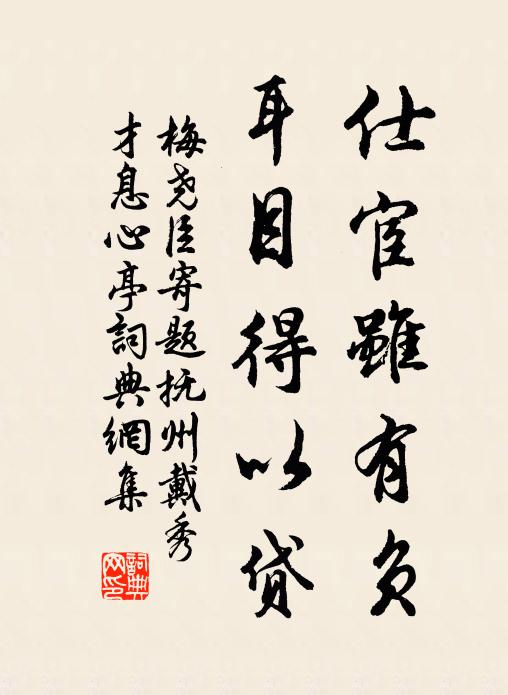 仕宦雖有負
耳目得以貸
梅尧臣寄题抚州戴秀
才息心亭詞典網集
詞典
网印